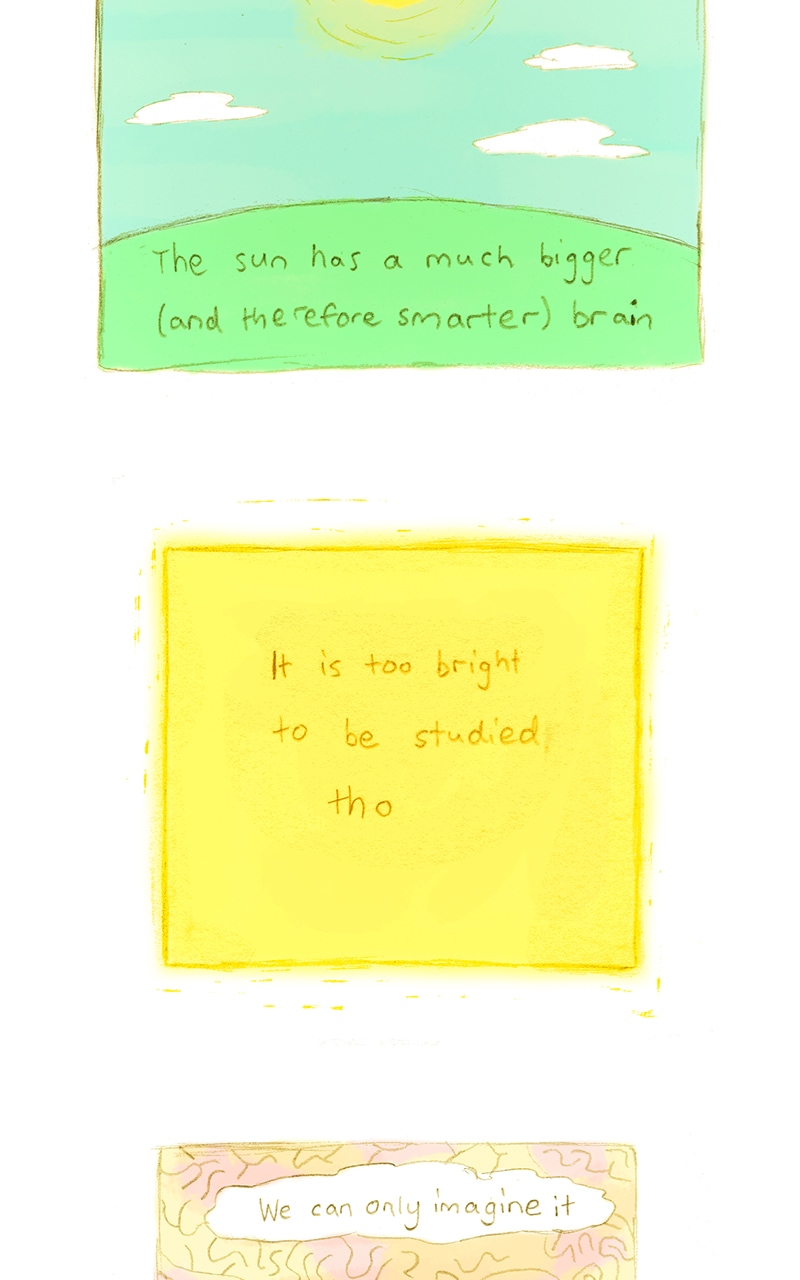 The sun has a much bigger
(and therefore smarter) brain
It is too bright
to be studied
tho
We can only imagine it